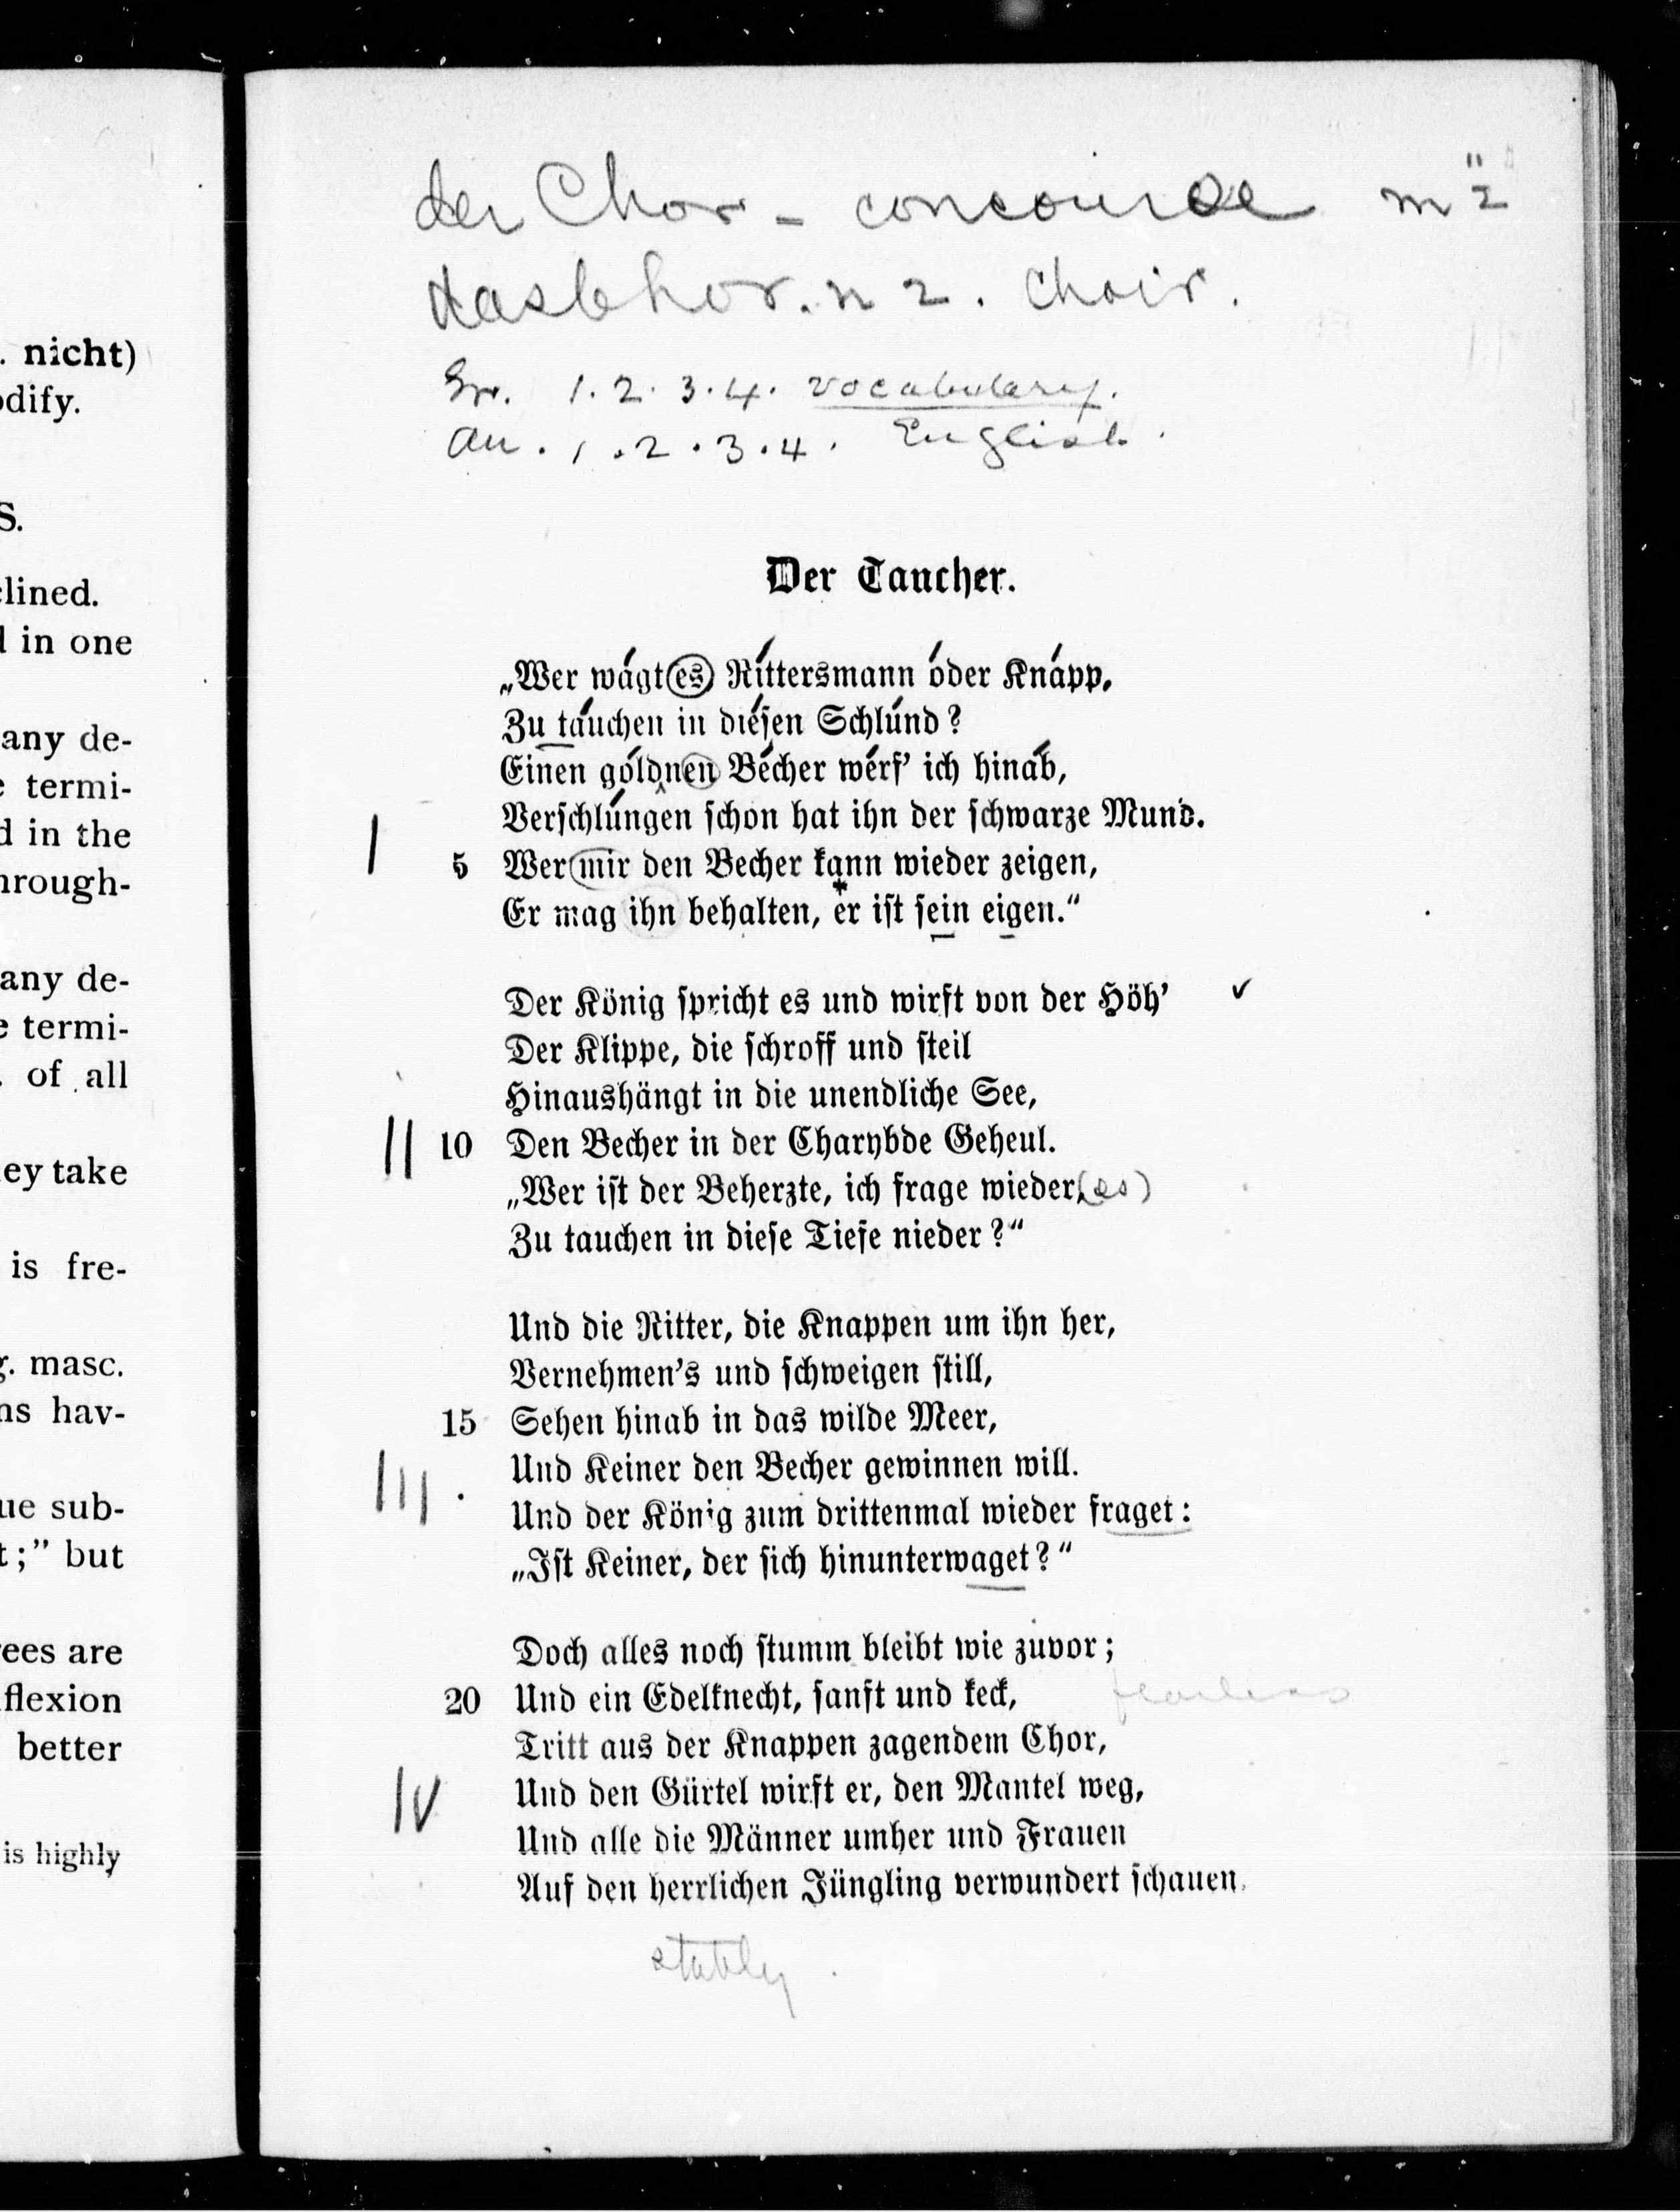 . nicht)
odify.
S.
clined.
d in one
any de-
e termi-
d in the
hrough-
any de-
e termi-
. of all
ey take
is fre-
g. masc.
ns hav-
ue sub-
t;” but
rees are
flexion
better
is highly
der Chor - concourse m ̈2
das Chor. n 2. Choir.
1. 2. 3. 4. vocabulary.
au. 1. 2. 3. 4. English.
Der Taucher.
„Wer wagt es, Rittersmann oder Knapp,
Zu tauchen in diesen Schlund?
Einen goldnen Becher werf’ ich hinab,
Verschlungen schon hat ihn der schwarze Mund.
I
5 Wer mir den Becher kann wieder zeigen,
Er mag ihn behalten, *er ist sein eigen.“
Der König spricht es und wirft von der Höh’ ✓
Der Klippe, die schroff und steil
Hinaushängt in die unendliche See,
II 10 Den Becher in der Charybde Geheul.
„Wer ist der Beherzte, ich frage wieder, (es)
Zu tauchen in diese Tiefe nieder?“
Und die Ritter, die Knappen um ihn her,
Vernehmen’s und schweigen still,
15 Sehen hinab in das wilde Meer,
Und Keiner den Becher gewinnen will.
III. Und der König zum drittenmal wieder fraget:
„Ist Keiner, der sich hinunterwaget?“
Doch alles noch stumm bleibt wie zuvor;
20 Und ein Edelknecht, sanft und keck, fearless
Tritt aus der Knappen zagendem Chor,
IV Und den Gürtel wirft er, den Mantel weg,
Und alle die Männer umher und Frauen
Auf den herrlichen Jüngling verwundert schauen.
stately